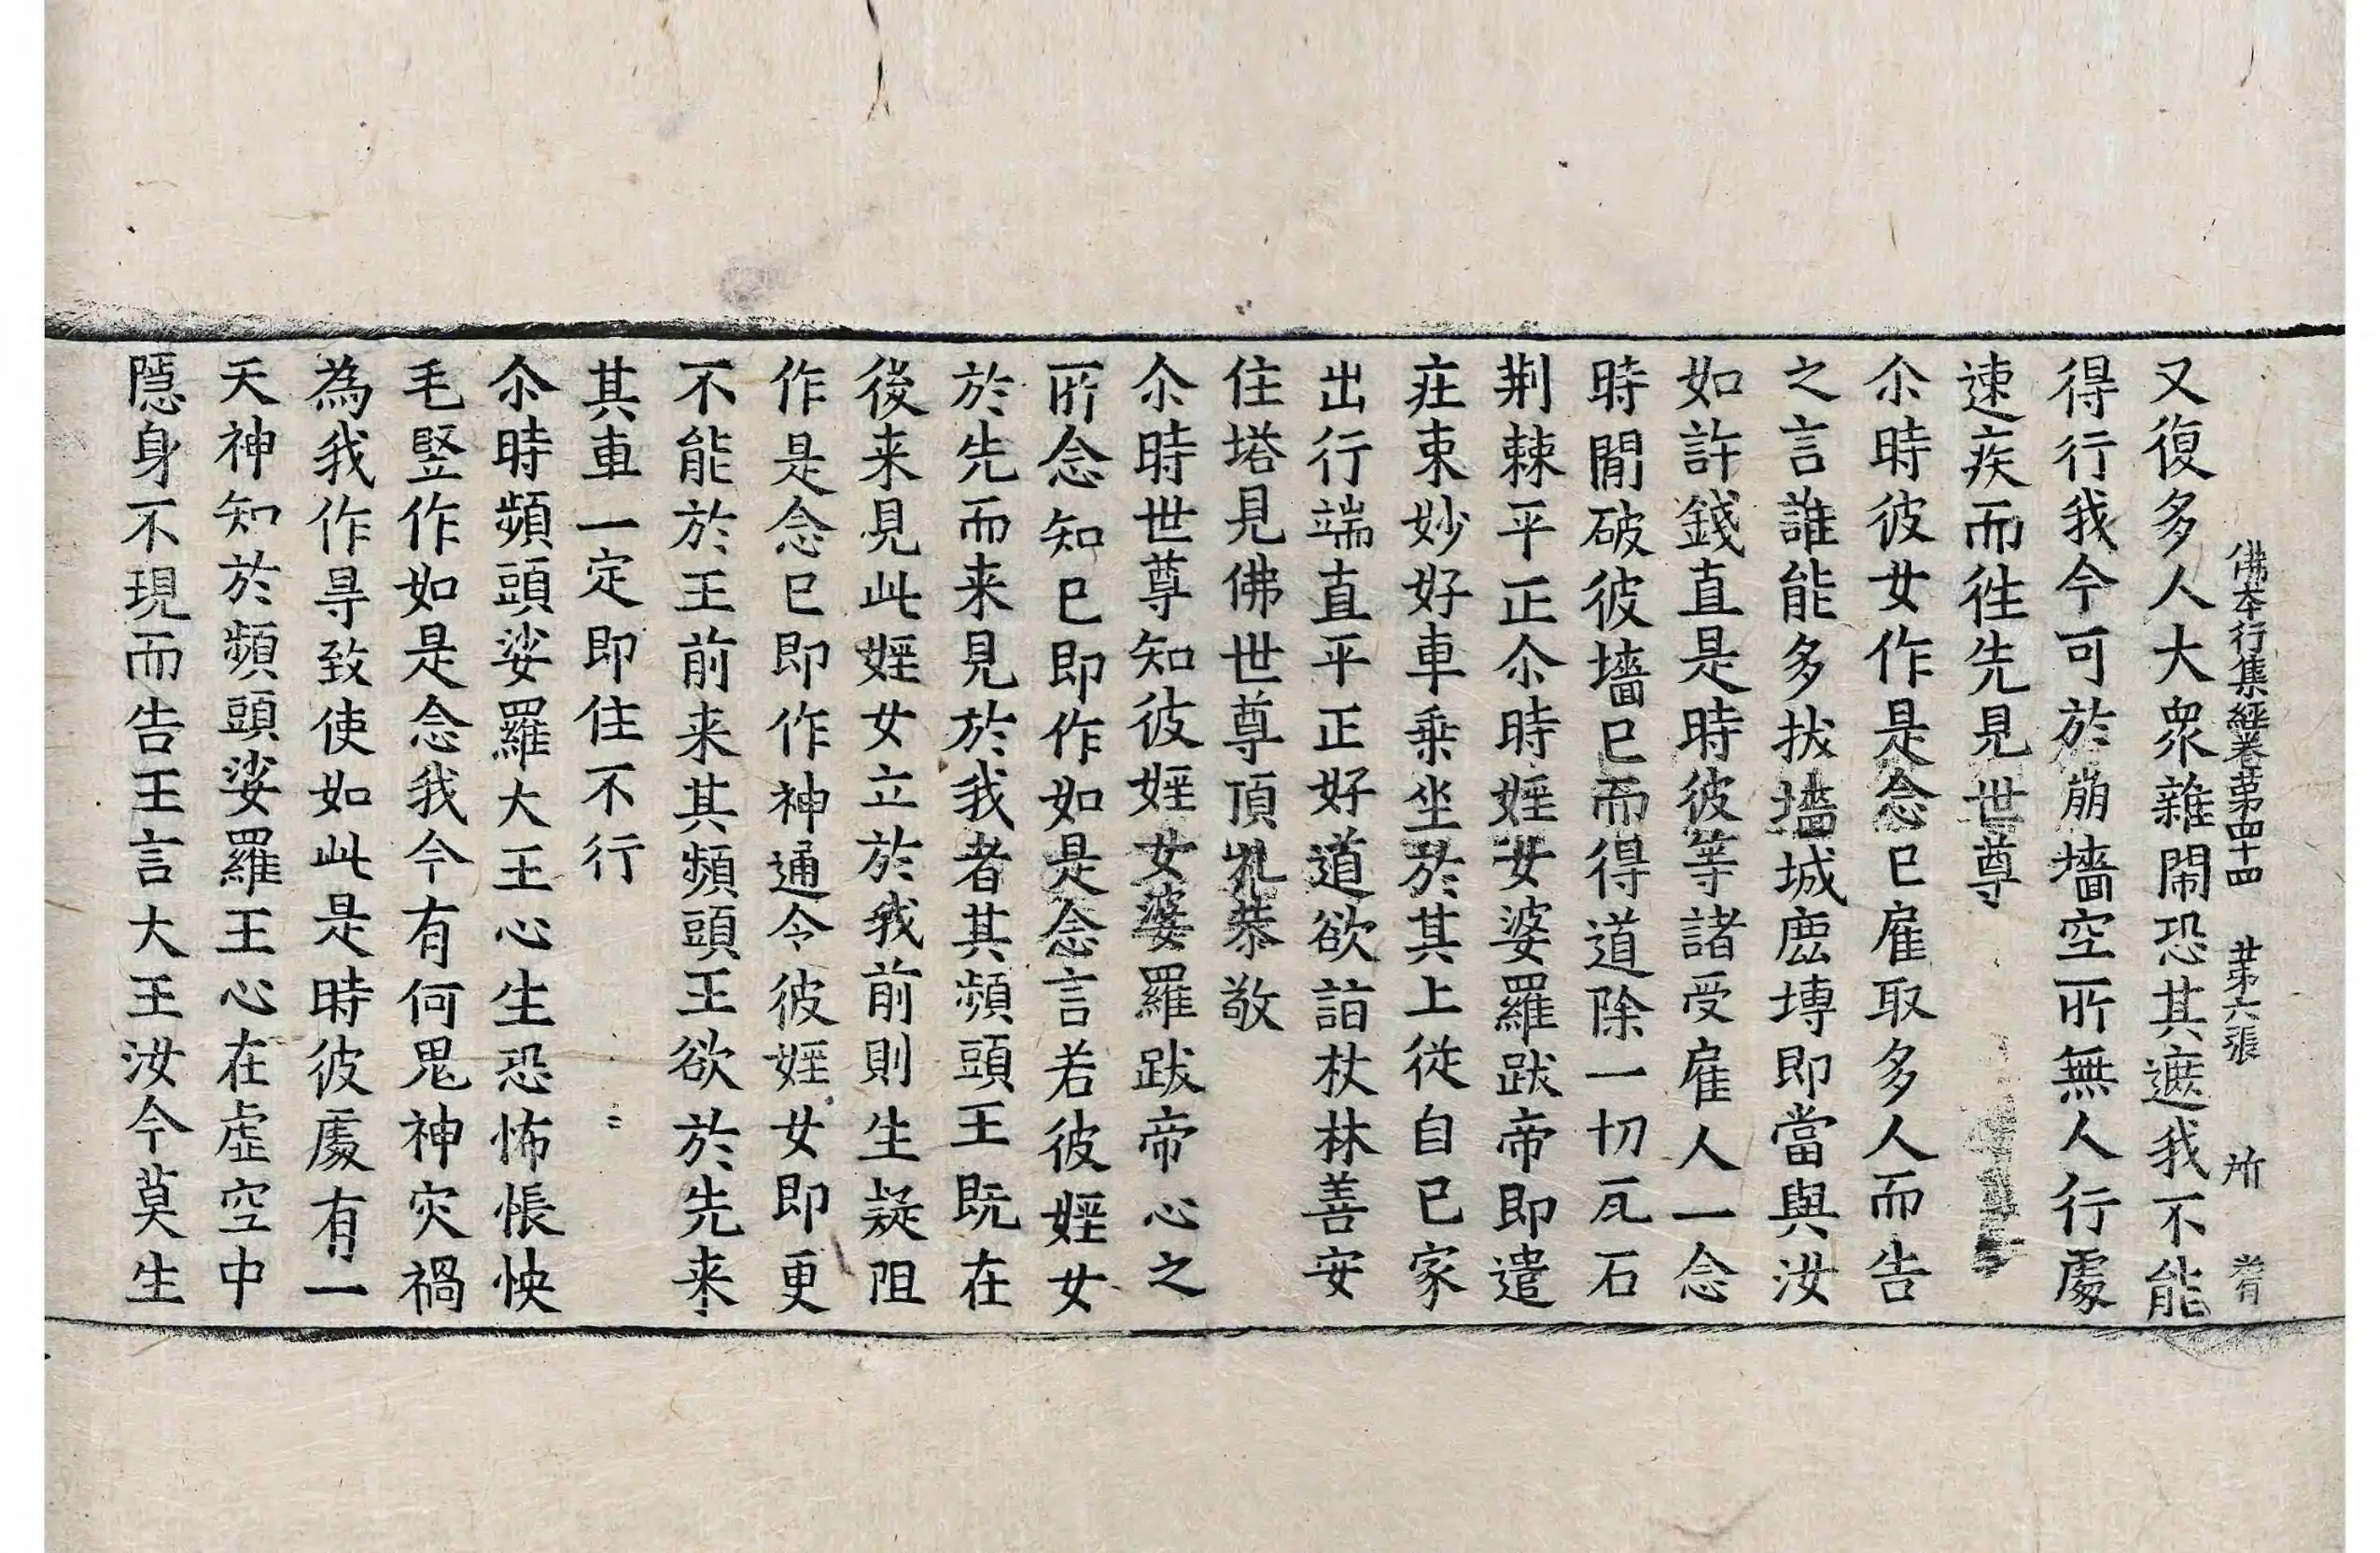 佛本行集經卷第四十四 第六張 所
又復多人大衆雜閙恐其遮我不能
得行我今可於崩墻空所無人行處
速疾而徃先見世尊
尒時彼女作是念已雇取多人而告
之言誰能多拔墻城麁塼即當與汝
如許錢直是時彼等諸受雇人一念
時閒破彼墻已而得道除一切瓦石
荆棘平正尒時婬女婆羅跋帝即遣
庄束妙好車乗坐於其上從自已家
出行端直平正好道欲詣杖林善安
住塔見佛世尊頂礼恭敬
尒時世尊知彼婬女婆羅跋帝心之
所念知已即作如是念言若彼婬女
於先而来見於我者其頻頭王既在
後来見此婬女立於我前則生疑阻
作是念已即作神通令彼婬女即更
不能於王前来其頻頭王欲於先来
其車一定即住不行
尒時頻頭娑羅大王心生恐怖悵怏
毛竪作如是念我今有何鬼神灾禍
為我作㝵致使如此是時彼處有一
天神知於頻頭娑羅王心在虛空中
隱身不現而告王言大王汝今莫生